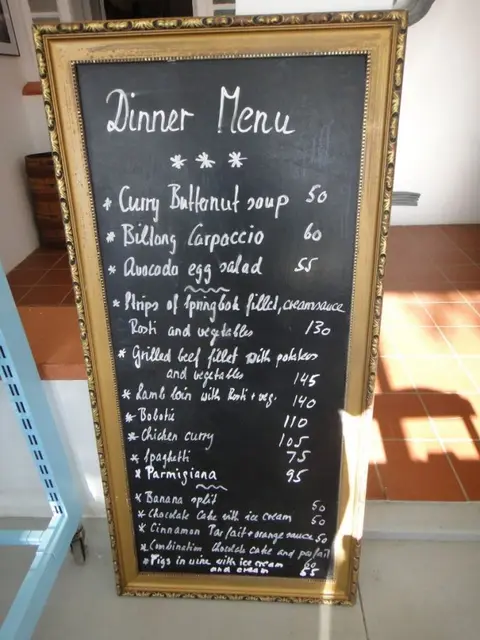 Dinner Menu
* * *
* Curry Butternut soup 50
* Biltong Carpaccio 60
* Avocado egg salad 55
* Strips of Springbok fillet, creamsauce
Rosti and vegetables 130
* Grilled beef fillet with potatoes
and vegetables 145
* Lamb loin with Rosti + veg. 140
* Bobotie 110
* Chicken curry 105
* Spaghetti 75
* Parmigiana 95
* Banana split 50
* Chocolate Cake with ice cream 50
* Cinnamon Parfait + orange sauce 50
* Combination Chocolate cake and parfait
60
* Figs in wine with ice cream
and cream 55